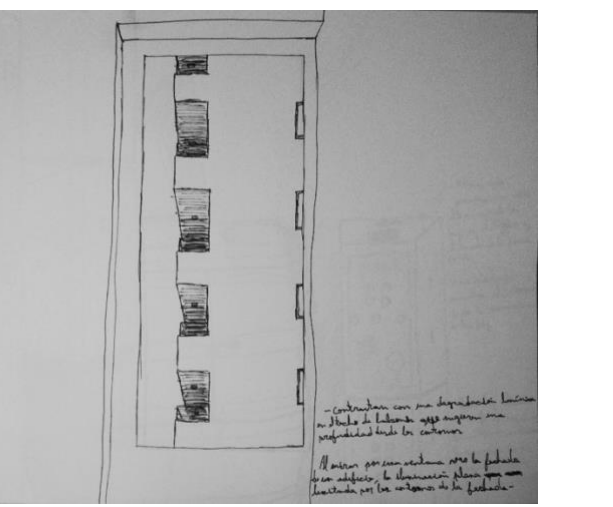 - Contrastan con una degradación lumínica
en el techo de balcones que sugieren una
profundidad desde los contornos
Al entrar por esa ventana veo la fachada
de un edificio, la iluminación plana
limitada por los contornos de la fachada-